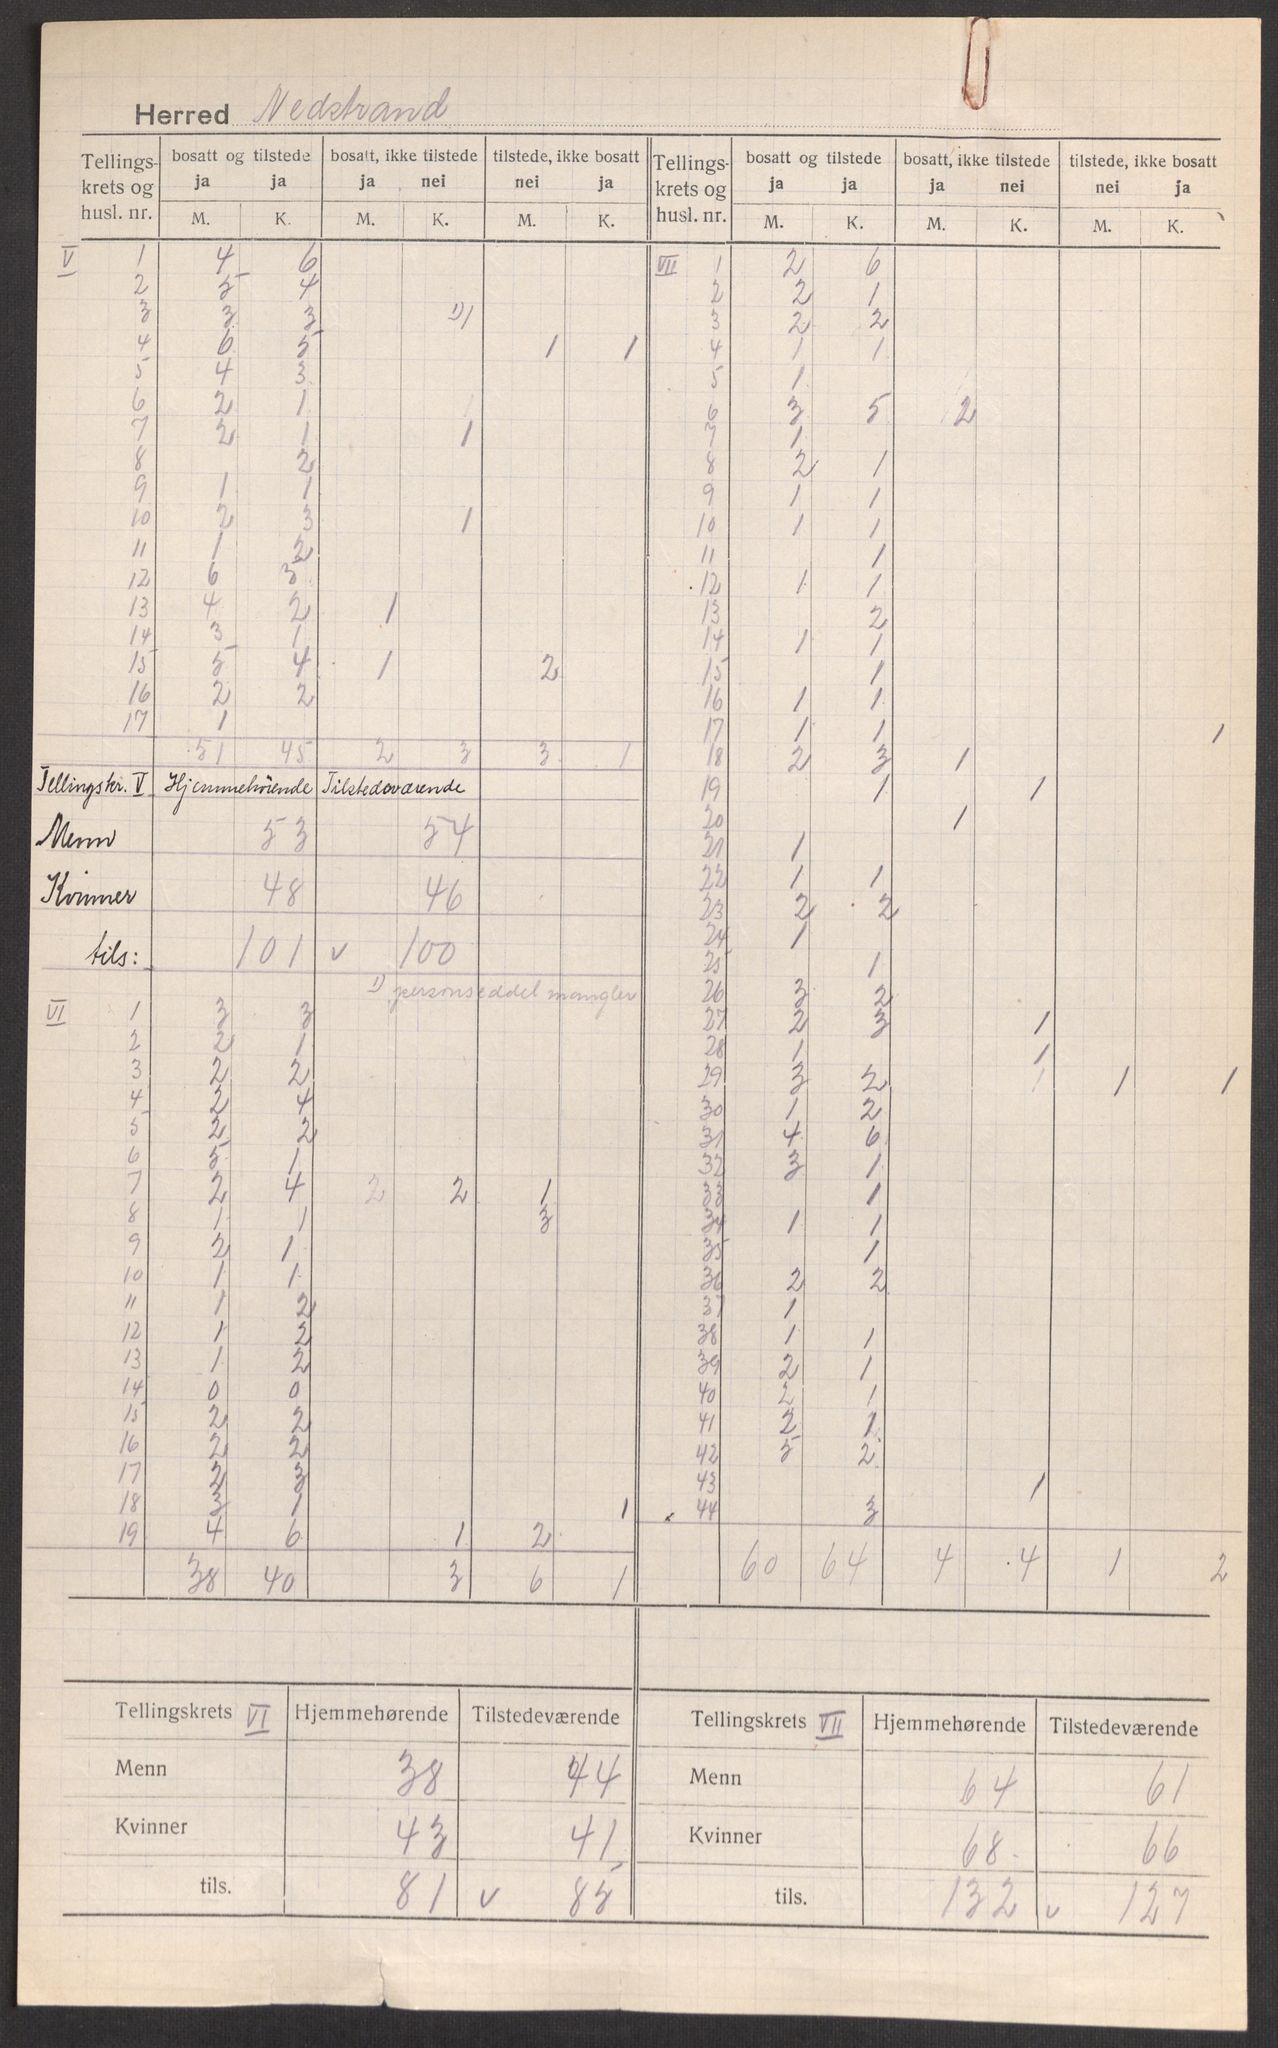 Herred Nedstrand
Tellings- krets og husl. nr. | bosatt og tilstede ja ja M. K. | bosatt, ikke tilstede ja nei M. K. | tilstede, ikke bosatt nei ja M. K.
V 1 4 6
2 5 4
3 3 3 1) 1
4 6 5 1 1
5 4 3
6 2 1
7 2 1 1
8 2
9 1 1
10 2 3 1
11 1 2
12 6 5
13 4 2 1
14 3 1
15 5 4 1 2
16 2 2
17 1
51 45 2 3 3 1
Tellingskr. V Hjemmehørende Tilstedeværende
Menn 53 54
Kvinner 48 46
tils: 101 v 100
1) personseddel mangler
VI 1 3 3
2 2 1
3 2 2
4 2 4
5 2 2
6 5 1
7 2 4 2 2 1
8 1 1 3
9 2 1
10 1 1
11 1 2
12 1 2
13 1 2
14 0 0
15 2 2
16 2 2
17 2 3
18 3 1 1
19 4 6 1 2
38 40 3 6 1
Tellingskrets VI Hjemmehørende Tilstedeværende
Menn 38 44
Kvinner 43 41
tils. 81 v 85
Tellings- krets og husl. nr. | bosatt og tilstede ja ja M. K. | bosatt, ikke tilstede ja nei M. K. | tilstede, ikke bosatt nei ja M. K.
VII 1 2 6
2 2 1
3 2 2
4 1 1
5 1
6 3 5 2
7 1
8 2 1
9 1 1
10 1 1
11 1
12 1 1
13 2
14 1 1
15 1
16 1 1
17 1 1 1
18 2 3 1
19 1 1
20 1
21 1
22 1 1
23 2 2
24 1
25 1
26 3 2
27 2 3 1
28 1 1
29 3 2 1 1 1
30 1 2
31 4 6
32 3 1
33 1
34 1 1
35 1
36 2 2
37 1
38 1 1
39 2 1
40 2 1
41 2 1
42 5 2
43 1
44 3
60 64 4 4 1 2
Tellingskrets VII Hjemmehørende Tilstedeværende
Menn 64 61
Kvinner 68 66
tils. 132 v 127